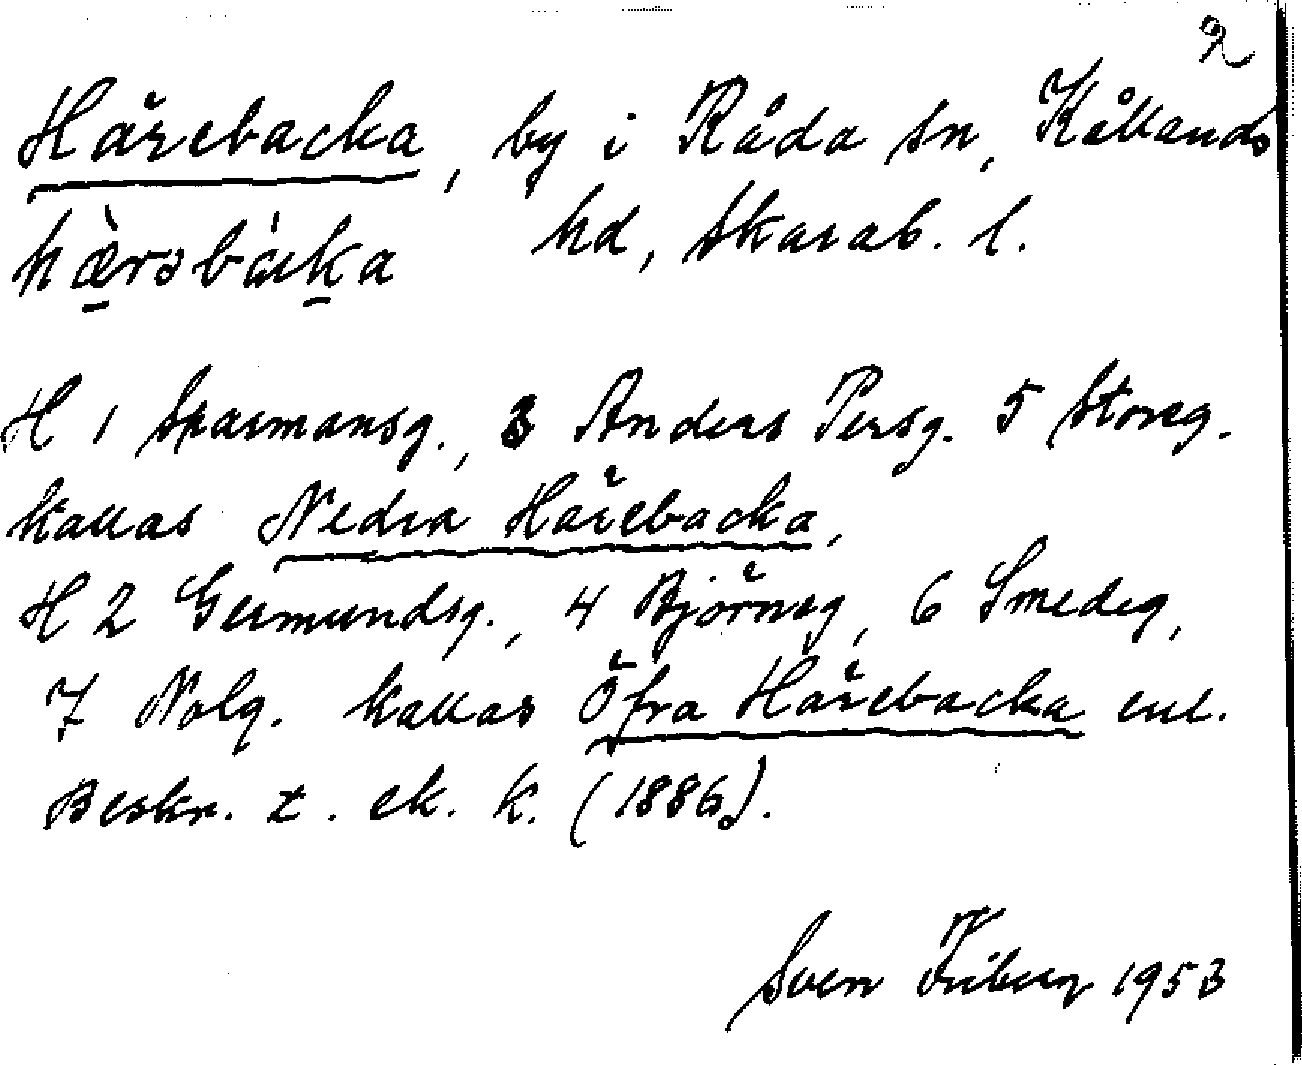 2
Härebacka, by i Råda sn, Kållands
hæ̀rəbàka hd, Skarab. l.
H 1 Sparmansg., 3 Anders Persg. 5 Storeg.
kallas Nedra Härebacka,
H 2 Germundsg., 4 Björneg, 6 Smedeg,
7 Nolg. kallas Öfra Härebacka enl.
Beskr. t. ek. k. (1886).
Sven Friberg 1953